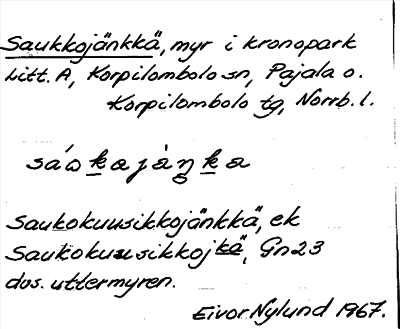 Saukkojänkkä, myr i kronopark
Litt. A, Korpilombolo sn, Pajala o.
Korpilombolo tg, Norrb. l.
sáωkajáŋka
Saukokuusikkojänkkä, ek
Saukokuusikkojkä, Gn23
dvs. uttermyren.
Eivor Nylund 1967.